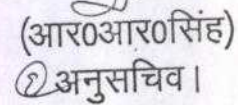 (आर0आर0सिंह)
अनुसचिव।